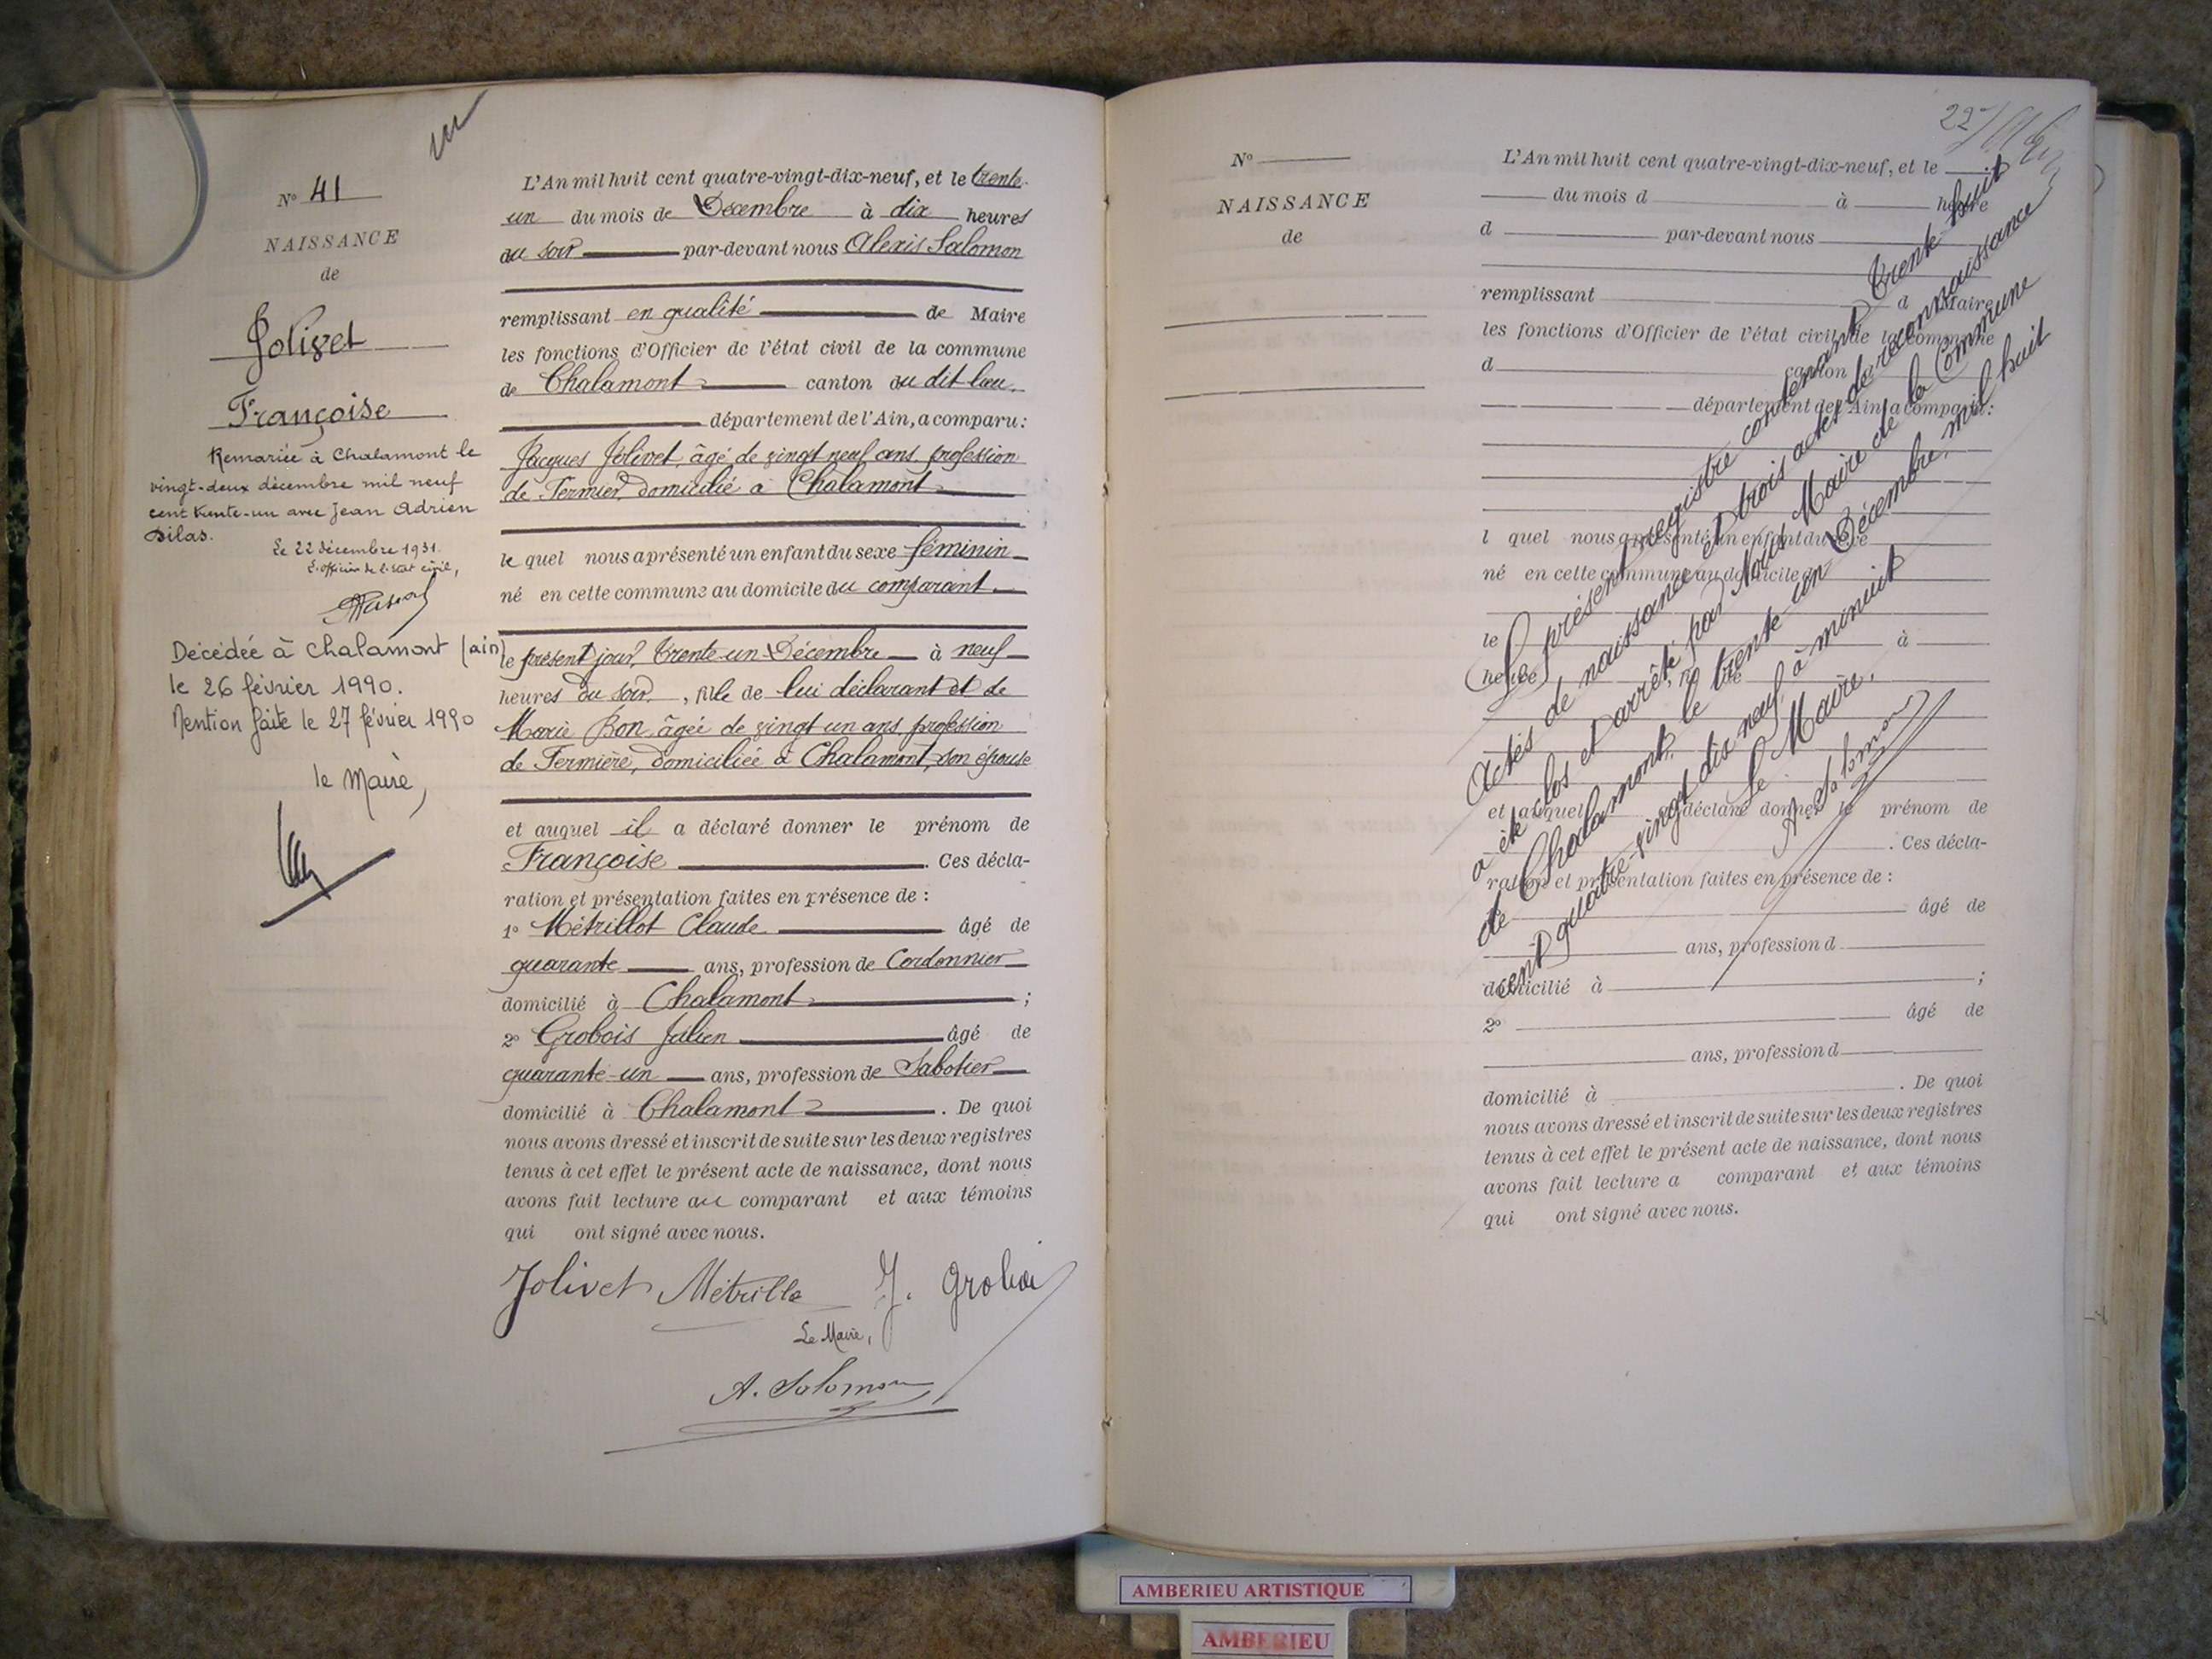 N° 41
NAISSANCE
de
Jolivet
Françoise
Remariée à Chalamont le
vingt-deux décembre mil neuf
cent trente-un avec Jean Adrien
Silas.
Le 22 décembre 1931.
L'officier de l'état civil,
Décédée à Chalamont (ain)
le 26 février 1990.
Mention faite le 27 février 1990
le Maire,
L'An mil huit cent quatre-vingt-dix-neuf, et le trente-
un du mois de Décembre à dix heures
du soir par-devant nous Alexis Salomon
remplissant en qualité de Maire
les fonctions d'Officier de l'état civil de la commune
de Chalamont canton du dit lieu,
département de l'Ain, a comparu:
Jacques Jolivet, âgé de vingt neuf ans, profession
de Fermier, domicilié à Chalamont
le quel nous a présenté un enfant du sexe féminin
né en cette commune au domicile du comparant
le présent jour, trente-un Décembre à neuf
heures du soir, fille de lui déclarant et de
Marie Bon, âgée de vingt un ans, profession
de Fermière, domiciliée à Chalamont, son épouse
et auquel il a déclaré donner le prénom de
Françoise. Ces décla-
ration et présentation faites en présence de :
1° Métrillot Claude âgé de
quarante ans, profession de Cordonnier
domicilié à Chalamont ;
2° Grobois Julien âgé de
quarante-un ans, profession de Sabotier
domicilié à Chalamont. De quoi
nous avons dressé et inscrit de suite sur les deux registres
tenus à cet effet le présent acte de naissance, dont nous
avons fait lecture au comparant et aux témoins
qui ont signé avec nous.
Jolivet Métrillo J. Groboi
Le Maire,
A. Salomon
N°
NAISSANCE
de
L'An mil huit cent quatre-vingt-dix-neuf, et le
du mois d à heure
d par-devant nous
remplissant d Maire
les fonctions d'Officier de l'état civil de la commune
d canton
département de l'Ain, a comparu:
l quel nous a présenté un enfant du sexe
né en cette commune au domicile d
le à
heure
et auquel déclaré donner le prénom de
. Ces décla-
ration et présentation faites en présence de :
âgé de
ans, profession d
domicilié à ;
2° âgé de
ans, profession d
domicilié à . De quoi
nous avons dressé et inscrit de suite sur les deux registres
tenus à cet effet le présent acte de naissance, dont nous
avons fait lecture a comparant et aux témoins
qui ont signé avec nous.
Le présent registre contenant trente-huit
Actes de naissance et trois actes de reconnaissance
a été clos et arrêté par Nous Maire de la Commune
de Chalamont, le trente-un Décembre, mil huit
cent quatre-vingt dix neuf à minuit
Le Maire,
A. Salomon
AMBERIEU ARTISTIQUE
AMBERIEU